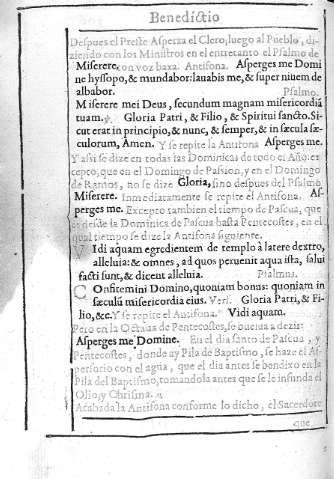 Benedictio
Despues el Preste Asperza el Clero, luego al Pueblo, di-
ziendo con los Ministros en el entretanto el Psalmo de
Miserere, con voz baxa. Antifona. Asperges me Domi
ne hyssopo, & mundabor: lauabis me, & super niuem de
albabor. Psalmo.
Miserere mei Deus, secundum magnam misericordiã
tuam. ℣. Gloria Patri, & Filio, & Spiritui sancto. Si-
cut erat in principio, & nunc, & semper, & in sæcula sæ-
culorum, Amen. Y se repite la Antifona Asperges me.
Y assi se dize en todas las Dominicas de todo el Año: ex
cepto, que en el Domingo de Passion, y en el Domingo
de Ramos, no se dize Gloria, sino despues del Psalmo
Miserere. Inmediatamente se repite el Antifona. As-
perges me. Excepto tambien el tiempo de Pascua, que
es desde la Dominica de Pascua hasta Pentecostes, en el
qual tiempo se dize la Antifona siguiente.
Vidi aquam egredientem de templo à latere dextro,
alleluia: & omnes, ad quos peruenit aqua ista, salui
facti sunt, & dicent alleluia. Psalmus.
Confitemini Domino, quoniam bonus: quoniam in
sæculũ misericordia eius. Vers. Gloria Patri, & Fi-
lio, &c. Y se repite el Antifona. Vidi aquam.
Pero en la Octaua de Pentecostes, se buelua a dezir
Asperges me Domine. En el dia santo de Pascua, y
Pentecostes, donde ay Pila de Baptismo, se haze el As-
persorio con el agua, que el dia antes se bendixo en la
Pila del Baptismo, tomandola antes que se le infunda el
Olio, y Chrisma.
Acabada la Antifona conforme lo dicho, el Sacerdote
que